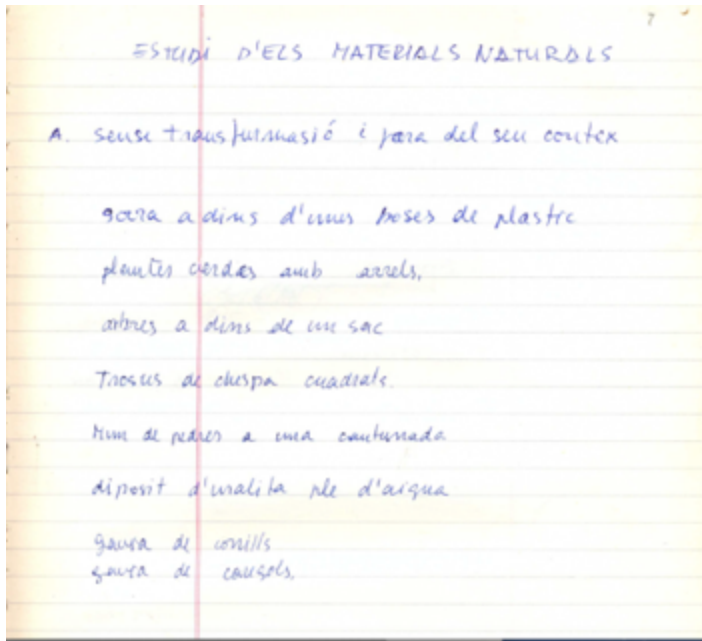 7
ESTUDI D'ELS MATERIALS NATURALS
A. sense transformasió i fora del seu contex
gorra a dins d'unes boses de plastic
plantes verdes amb arrels,
arbres a dins de un sac
Trosus de chespa cuadrats.
Mun de pedres a una cantunada
diposit d'uralita ple d'aigua
gavia de conills
gavia de caragols,